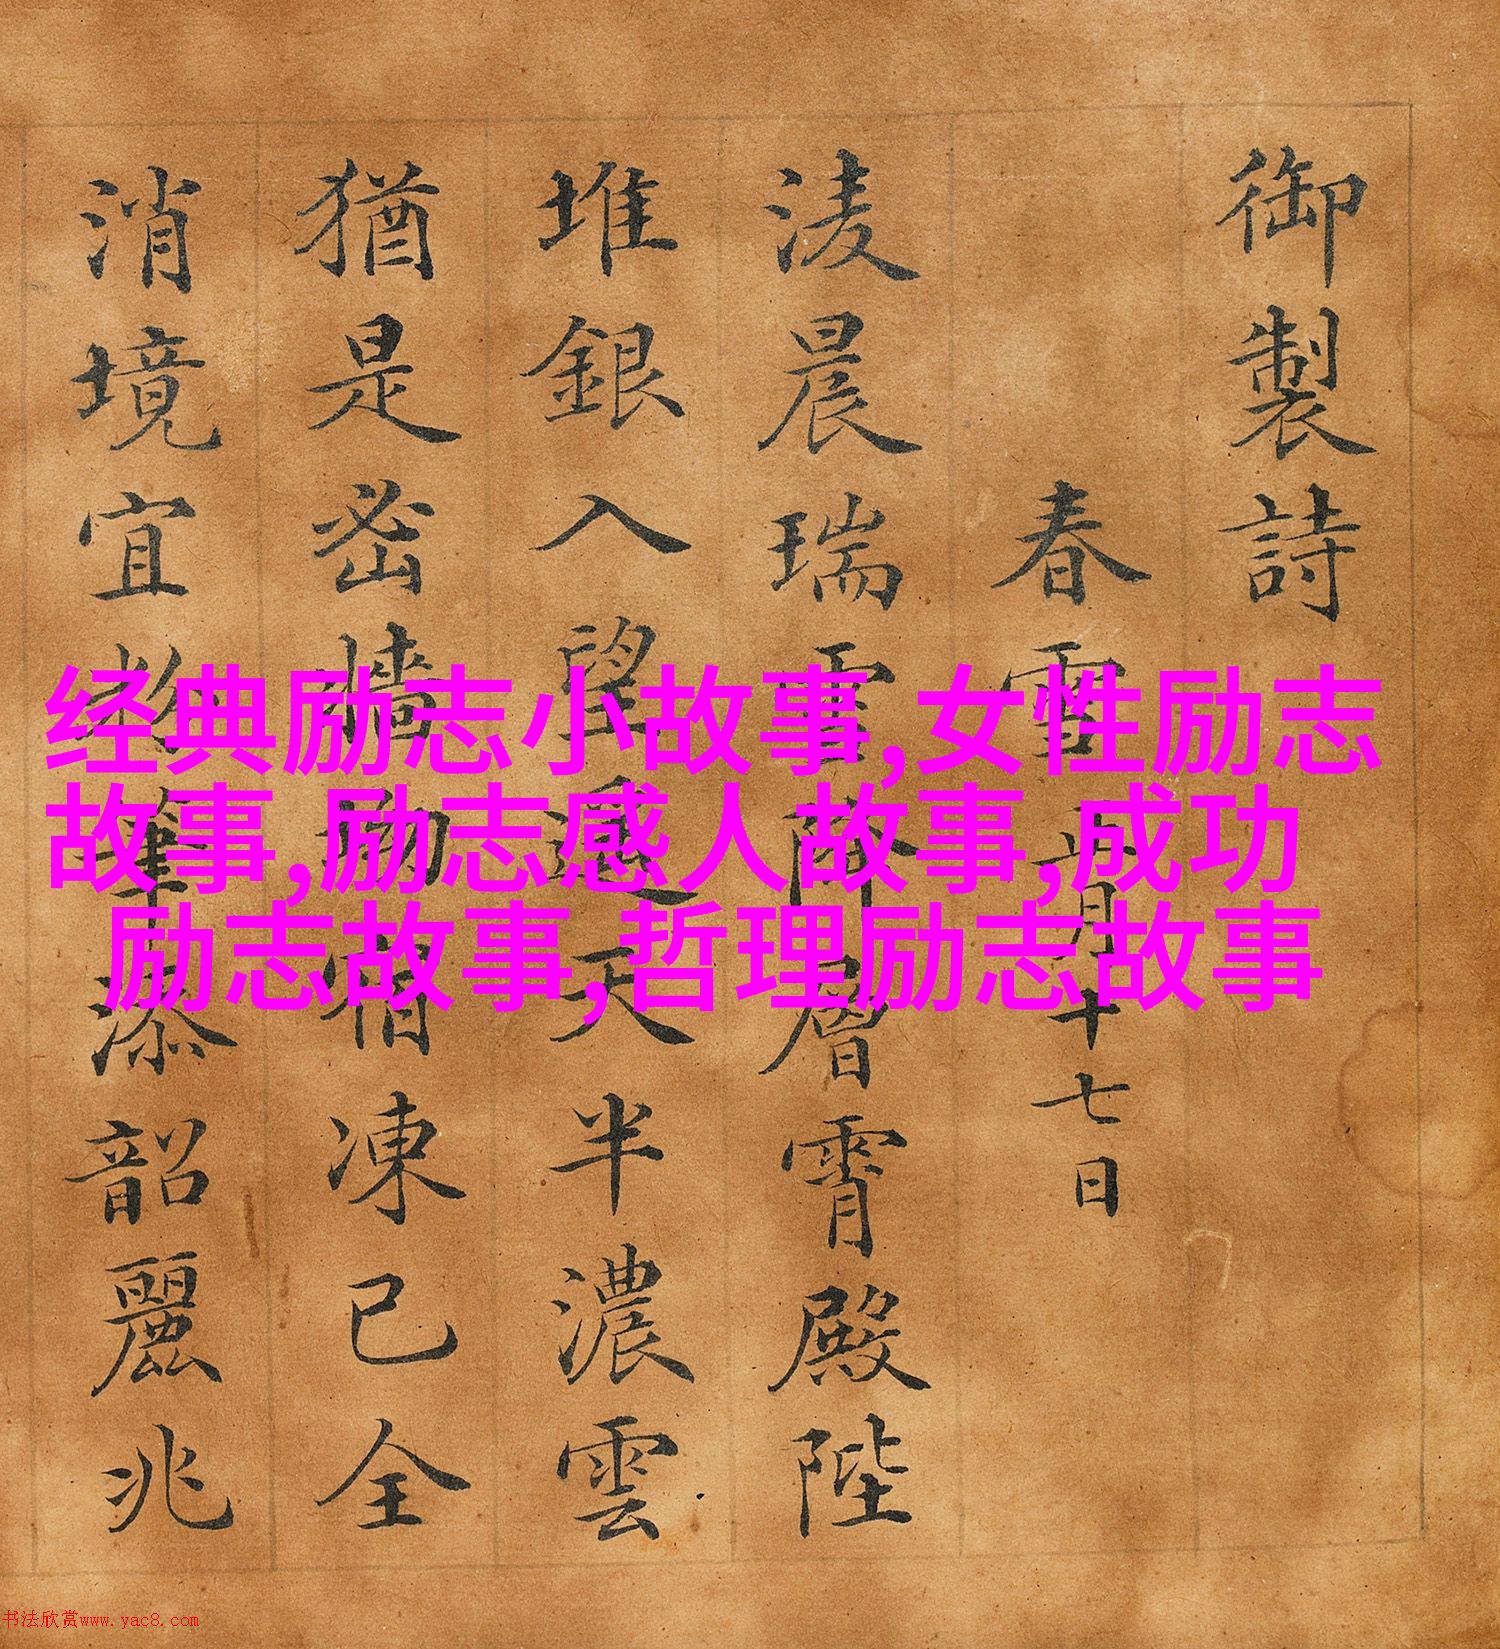 御製詩
春雪 正月十七日
淩晨瑞雪降層霄殿陛
堆銀入望遥天半濃雲
猶是密牆坳凍已全
消境宜添韶麗兆
经典励志小故事,女性励志
故事,励志感人故事,成功
励志故事,哲理励志故事
书法欣赏www.yac8.com